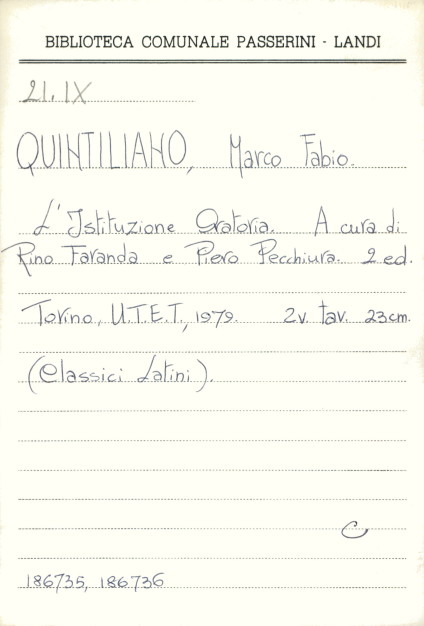 BIBLIOTECA COMUNALE PASSERINI - LANDI
21.IX
QUINTILIANO, Marco Fabio.
L'Istituzione Oratoria. A cura di
Rino Faranda e Piero Pecchiura. 2 ed.
Torino, U.T.E.T., 1979. 2v. tav. 23cm.
(Classici Latini).
C
186735, 186736